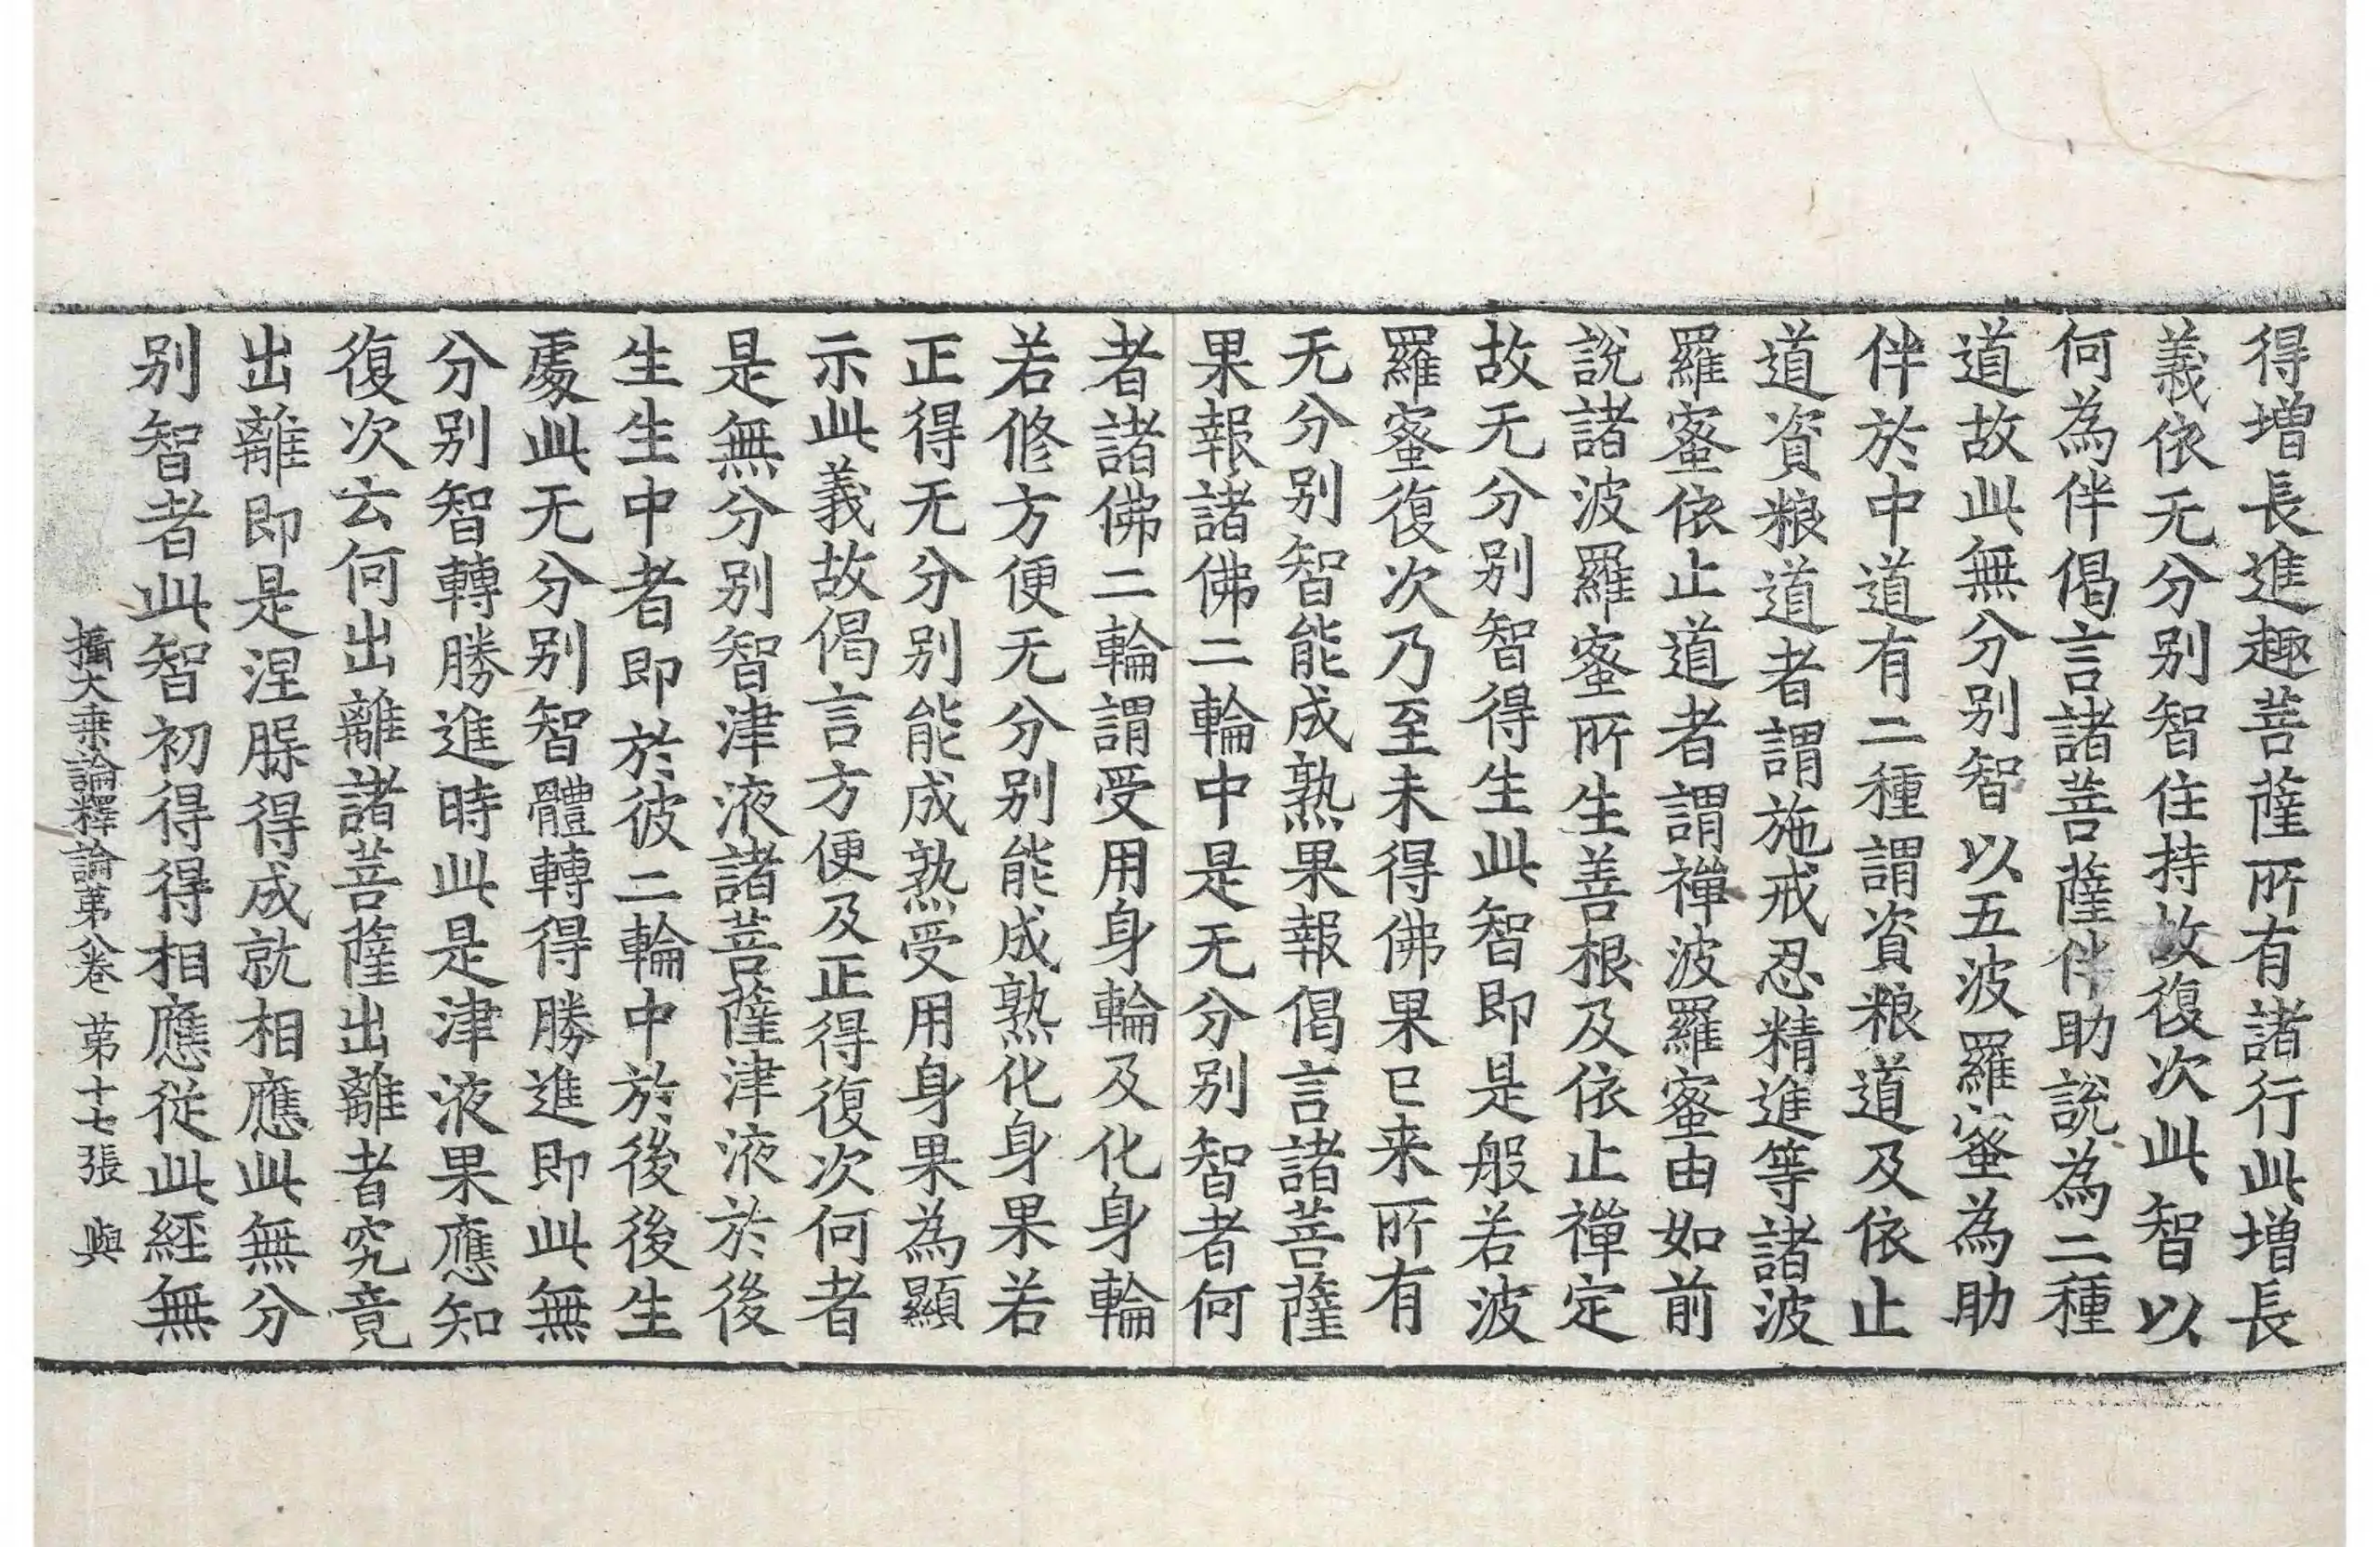 得增長進趣菩薩所有諸行此增長
義依无分别智住持故復次此智以
何為伴偈言諸菩薩伴助說為二種
道故此無分别智以五波羅蜜為助
伴於中道有二種謂資粮道及依止
道資粮道者謂施戒忍精進等諸波
羅蜜依止道者謂禪波羅蜜由如前
說諸波羅蜜所生善根及依止禪定
故无分别智得生此智即是般若波
羅蜜復次乃至未得佛果已来所有
无分别智能成熟果報偈言諸菩薩
果報諸佛二輪中是无分别智者何
者諸佛二輪謂受用身輪及化身輪
若修方便无分别能成熟化身果若
正得无分别能成熟受用身果為顯
示此義故偈言方便及正得復次何者
是無分别智津液諸菩薩津液於後
生生中者即於彼二輪中於後後生
處此无分别智體轉得勝進即此無
分别智轉勝進時此是津液果應知
復次云何出離諸菩薩出離者究竟
出離即是涅槃得成就相應此無分
别智者此智初得得相應從此經無
攝大乗論釋論苐八卷 苐十七張 與